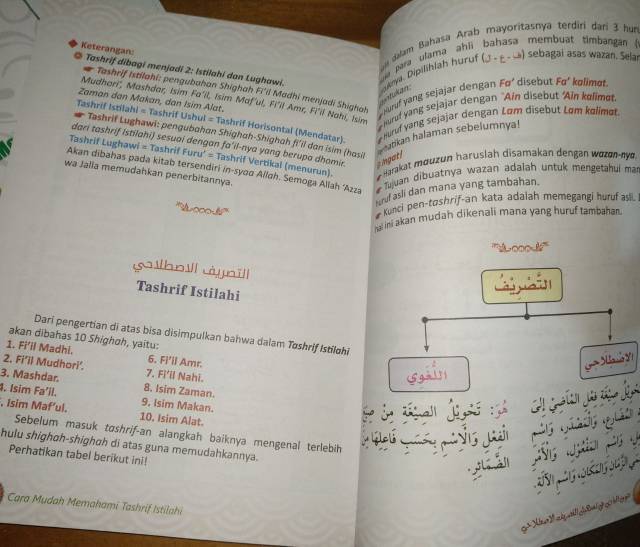 Keterangan:
Tashrif dibagi menjadi 2: Istilahi dan Lughawi.
Tashrif Istilahi: pengubahan Shighah Fi'il Madhi menjadi Shighah
Mudhori', Mashdar, Isim Fa'il, Isim Maf'ul, Fi'il Amr, Fi'il Nahi, Isim
Zaman dan Makan, dan Isim Alat.
Tashrif Istilahi = Tashrif Ushul = Tashrif Horisontal (Mendatar).
Tashrif Lughawi: pengubahan Shighah-Shighah fi'il dan isim (hasil
dari tashrif istilahi) sesuai dengan fa'il-nya yang berupa dhomir.
Tashrif Lughawi = Tashrif Furu' = Tashrif Vertikal (menurun).
Akan dibahas pada kitab tersendiri in-syaa Allah. Semoga Allah 'Azza
wa Jalla memudahkan penerbitannya.
التصريف الاصطلاحي
Tashrif Istilahi
Dari pengertian di atas bisa disimpulkan bahwa dalam Tashrif Istilahi
akan dibahas 10 Shighah, yaitu:
1. Fi'il Madhi.
2. Fi'il Mudhori'.
3. Mashdar.
4. Isim Fa'il.
. Isim Maf'ul.
6. Fi'il Amr.
7. Fi'il Nahi.
8. Isim Zaman.
9. Isim Makan.
10. Isim Alat.
Sebelum masuk tashrif-an alangkah baiknya mengenal terlebih
hulu shighah-shighah di atas guna memudahkannya.
Perhatikan tabel berikut ini!
Cara Mudah Memahami Tashrif Istilahi
dalam Bahasa Arab mayoritasnya terdiri dari 3 huru
para ulama ahli bahasa membuat timbangan
Dipilihlah huruf (ف - ع - ل) sebagai asas wazan. Selan
huruf yang sejajar dengan Fa' disebut Fa' kalimat.
Huruf yang sejajar dengan 'Ain disebut 'Ain kalimat.
Huruf yang sejajar dengan Lam disebut Lam kalimat.
halaman sebelumnya!
Ingat!
Harakat mauzun haruslah disamakan dengan wazan-nya.
Tujuan dibuatnya wazan adalah untuk mengetahui man
huruf asli dan mana yang tambahan.
Kunci pen-tashrif-an kata adalah memegangi huruf asli.
hal ini akan mudah dikenali mana yang huruf tambahan.
التَّصْرِيْفُ
اللُّغَوِيُّ
الاصْطِلَاحِيُّ
هُوَ: تَحْوِيْلُ الصِّيْغَةِ مِنَ
الْفِعْلِ وَالْاِسْمِ بِحَسَبِ فَاعِلِهَا
الضَّمَائِرِ.